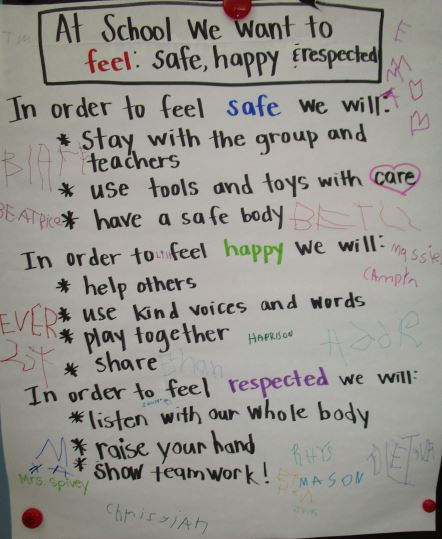 At School We Want to
feel: safe, happy & respected
EMMA
In order to feel safe we will:
* Stay with the group and
teachers
* use tools and toys with care
BEATRice
* have a safe body
In order to feel happy we will:
* help others
* use kind voices and words
EVER
* play together
HARRISON
* share
Ethan
In order to feel respected we will:
* listen with our whole body
* raise your hand
RHYS
* show teamwork!
MASON
Mrs. Spivey